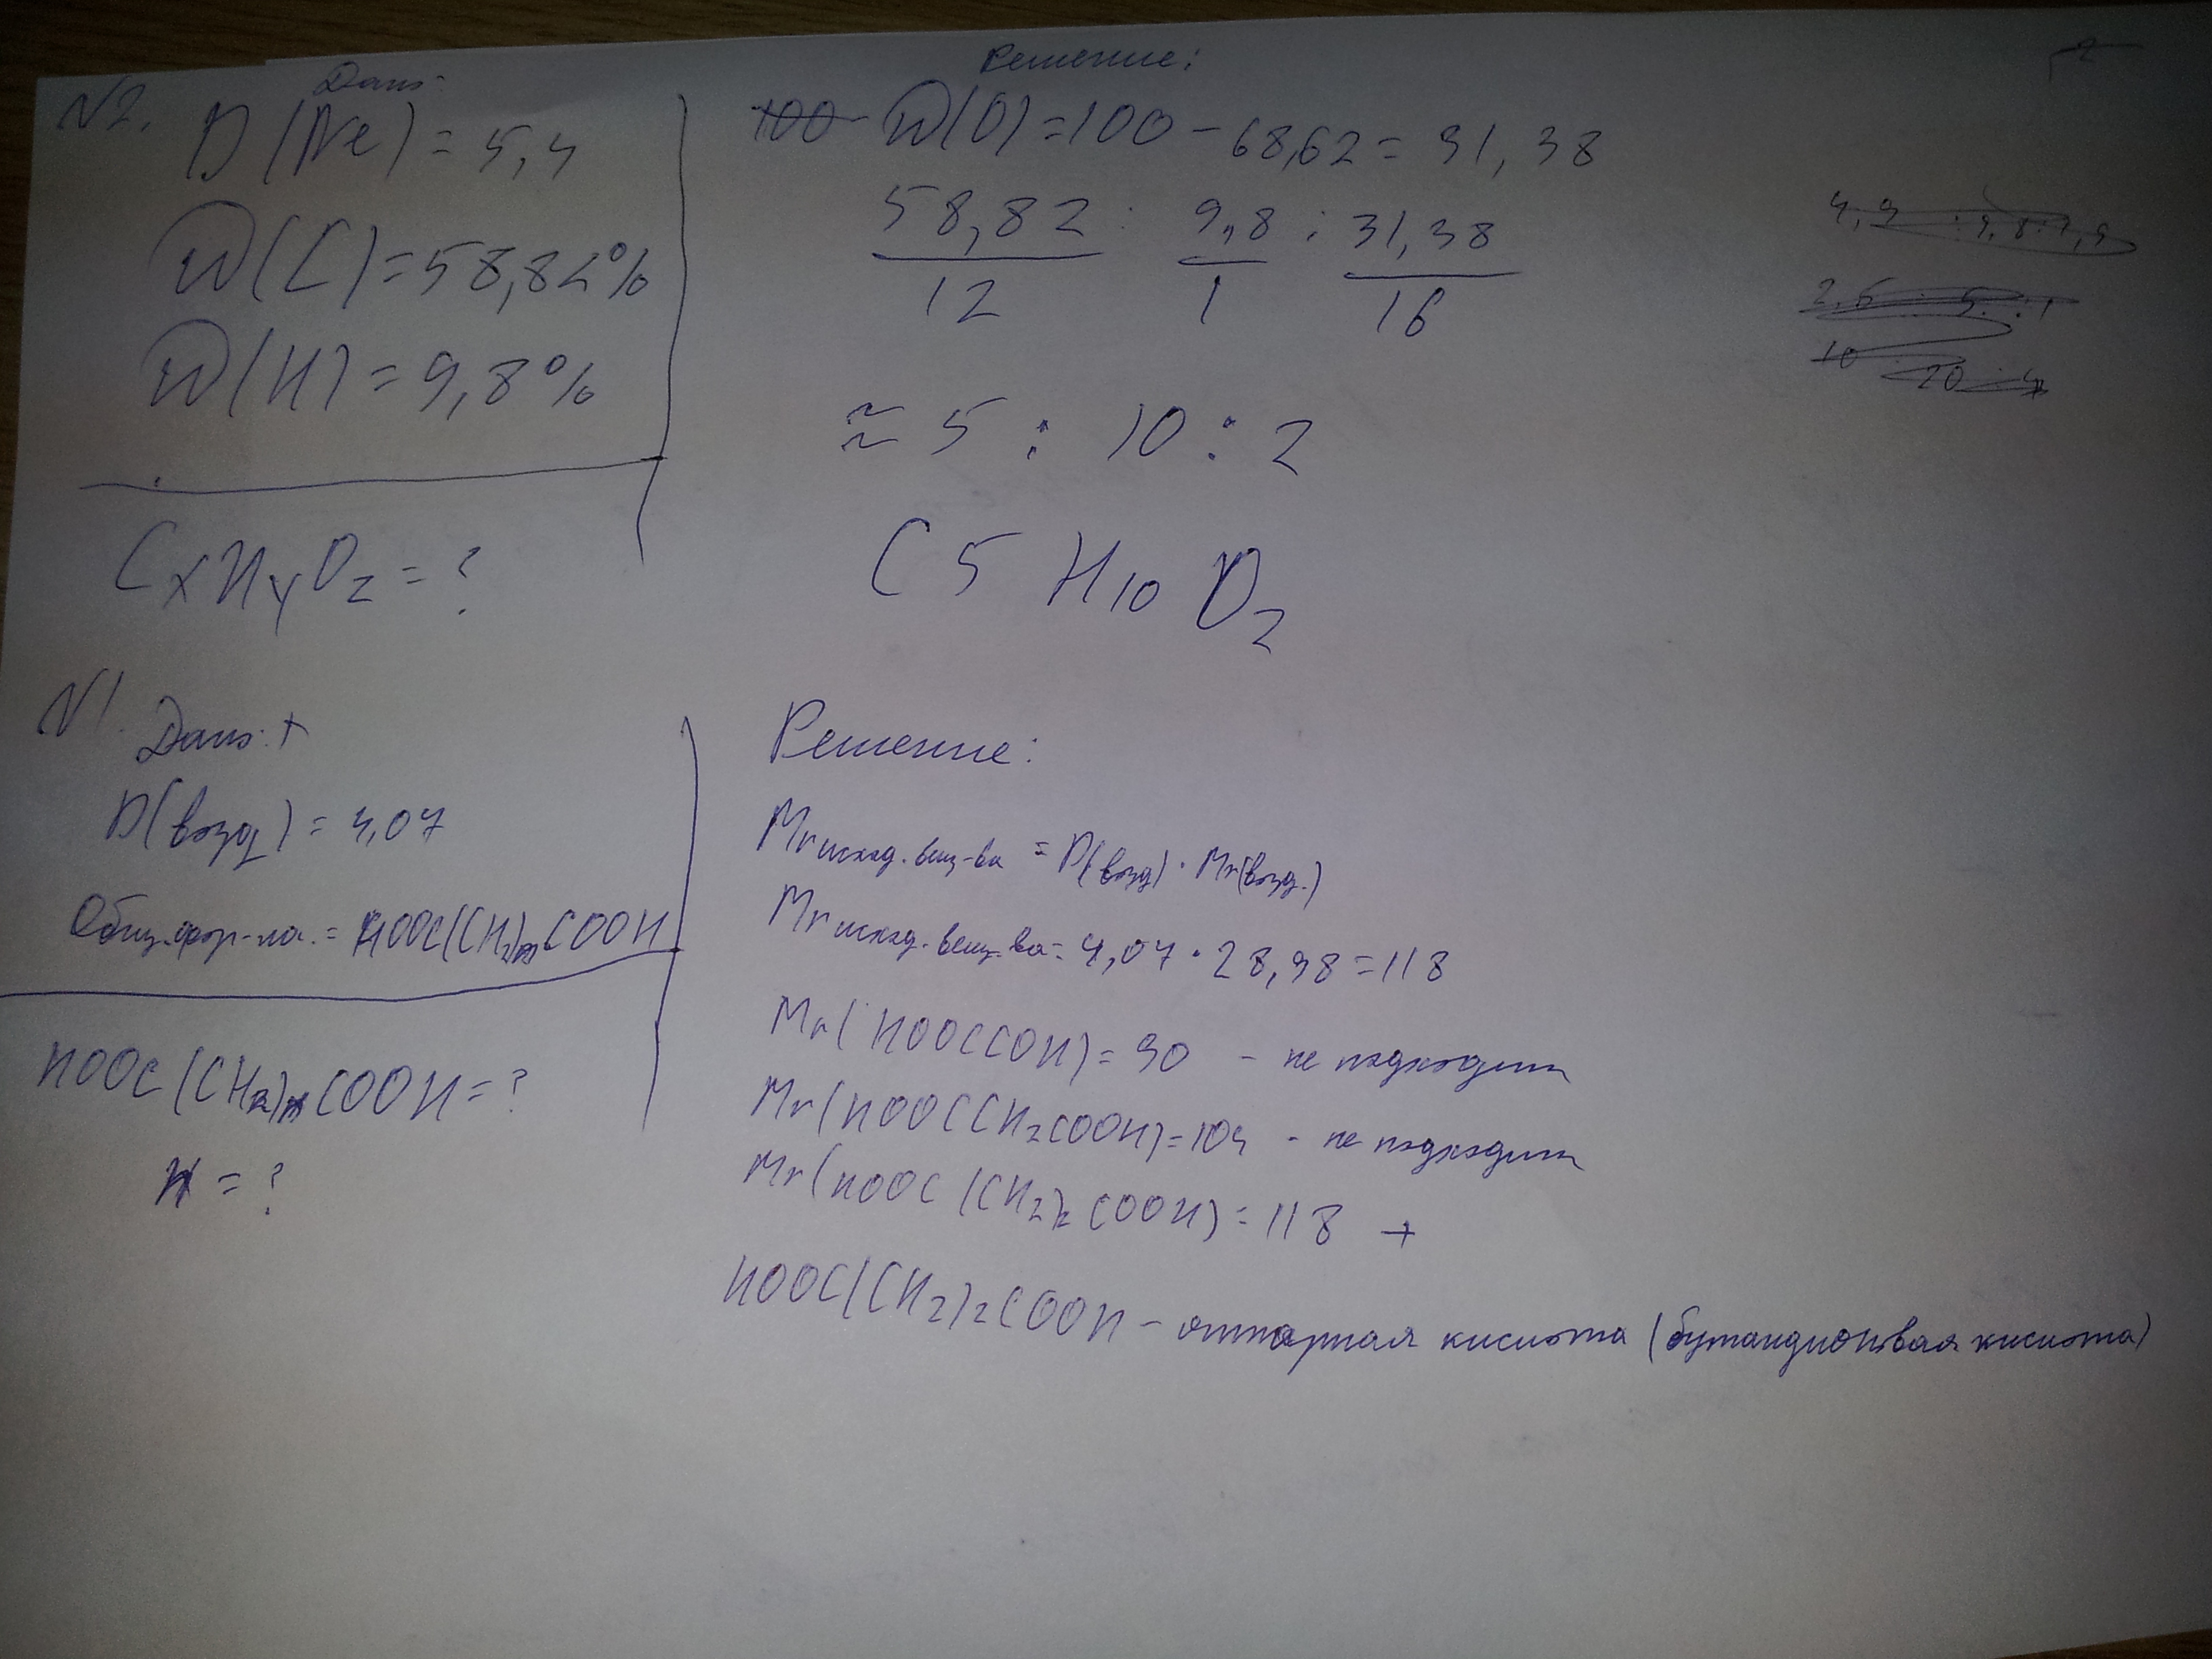 Дано:
№2.
D(Ne) = 5,4
W(C) = 58,82%
W(H) = 9,8%
CxHyOz = ?
Решение:
100 - W(O) = 100 - 68,62 = 31,38
58,82 : 9,8 : 31,38
12 1 16
≈ 5 : 10 : 2
C5H10O2
2,5 : 5 : 1
10 : 20 : 4
№1.
Дано:
D(возд) = 4,07
Общ. фор-ла = HOOC(CH2)nCOOH
HOOC(CH2)nCOOH = ?
n = ?
Решение:
Mr исход. вещ-ва = D(возд) · Mr(возд.)
Mr исход. вещ-ва = 4,07 · 28,98 = 118
Mr(HOOCCOH) = 90 - не подходит
Mr(HOOCCH2COOH) = 104 - не подходит
Mr(HOOC(CH2)2COOH) = 118 +
HOOC(CH2)2COOH - янтарная кислота (бутандионовая кислота)